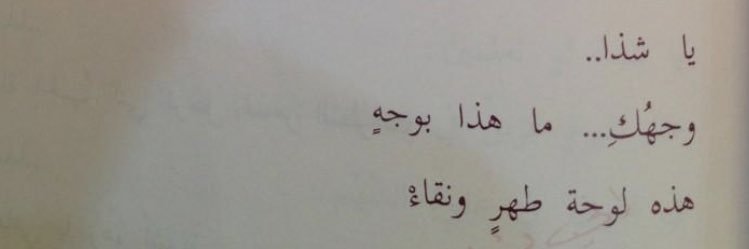 يا شذا..
وجهُكِ... ما هذا بوجهٍ
هذه لوحة طهرٍ ونقاءْ